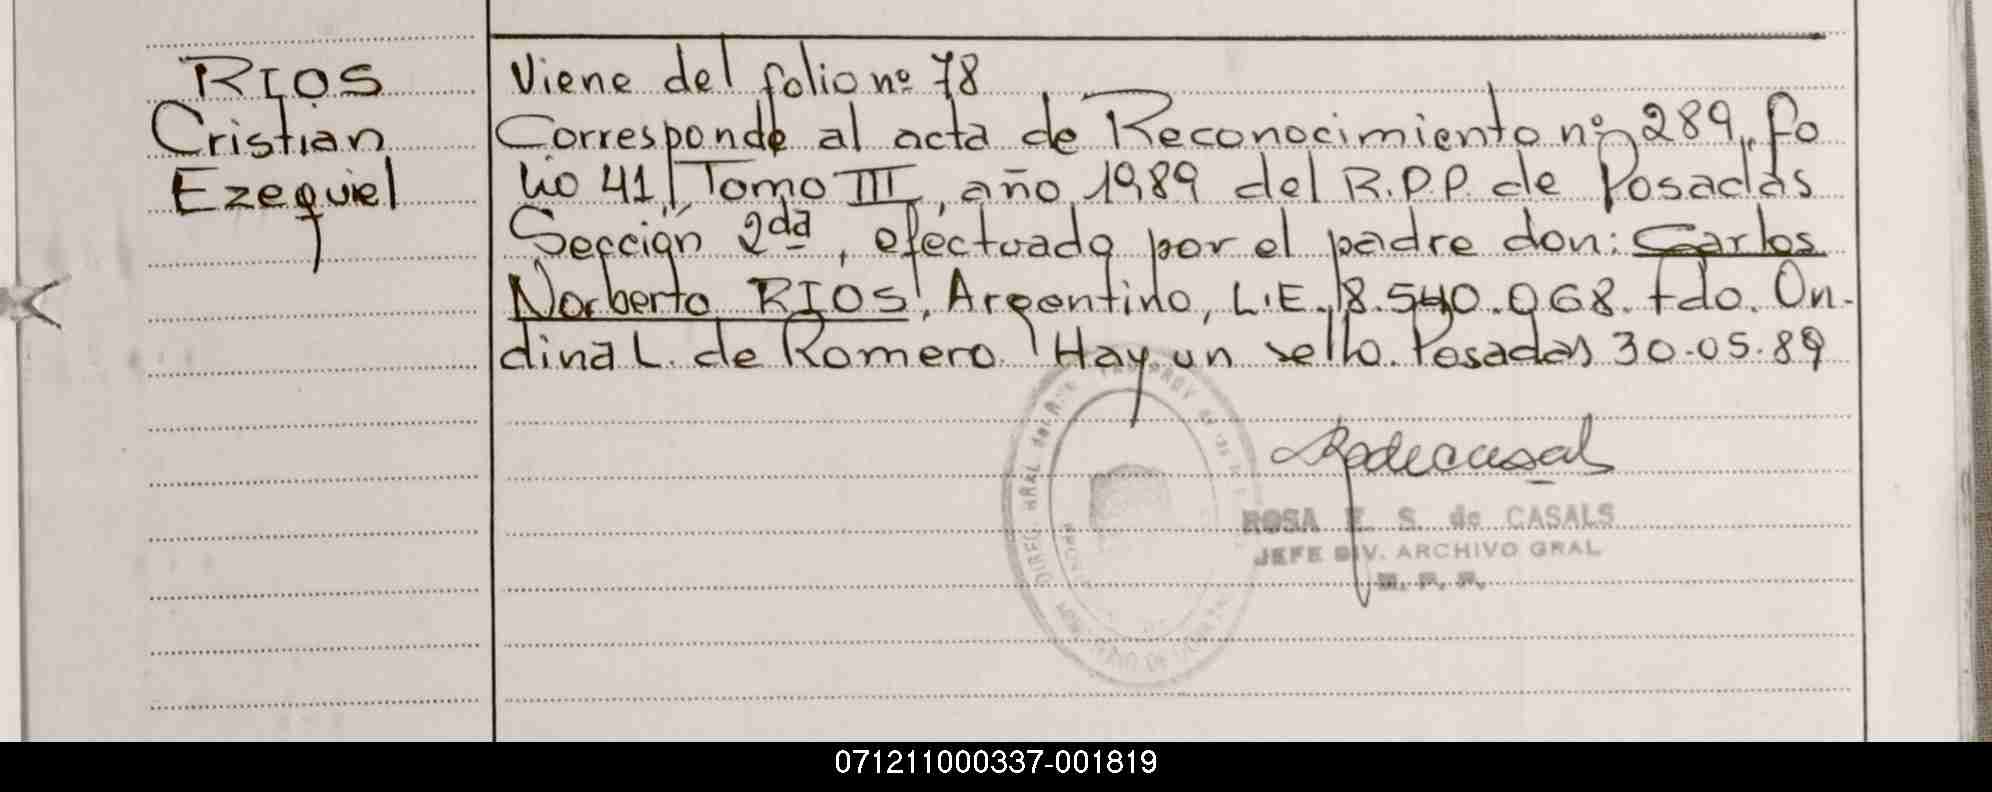 RIOS
Cristian
Ezequiel
Viene del folio nº 78
Corresponde al acta de Reconocimiento nº 289, fo
lio 41, Tomo III, año 1989 del R.P.P. de Posadas
Sección 2da, efectuado por el padre don: Carlos
Norberto RIOS, Argentino, L.E. 8.540.068. fdo. On-
dina L. de Romero. Hay un sello. Posadas 30.05.89
ROSA E. S. de CASALS
JEFE DIV. ARCHIVO GRAL
071211000337-001819